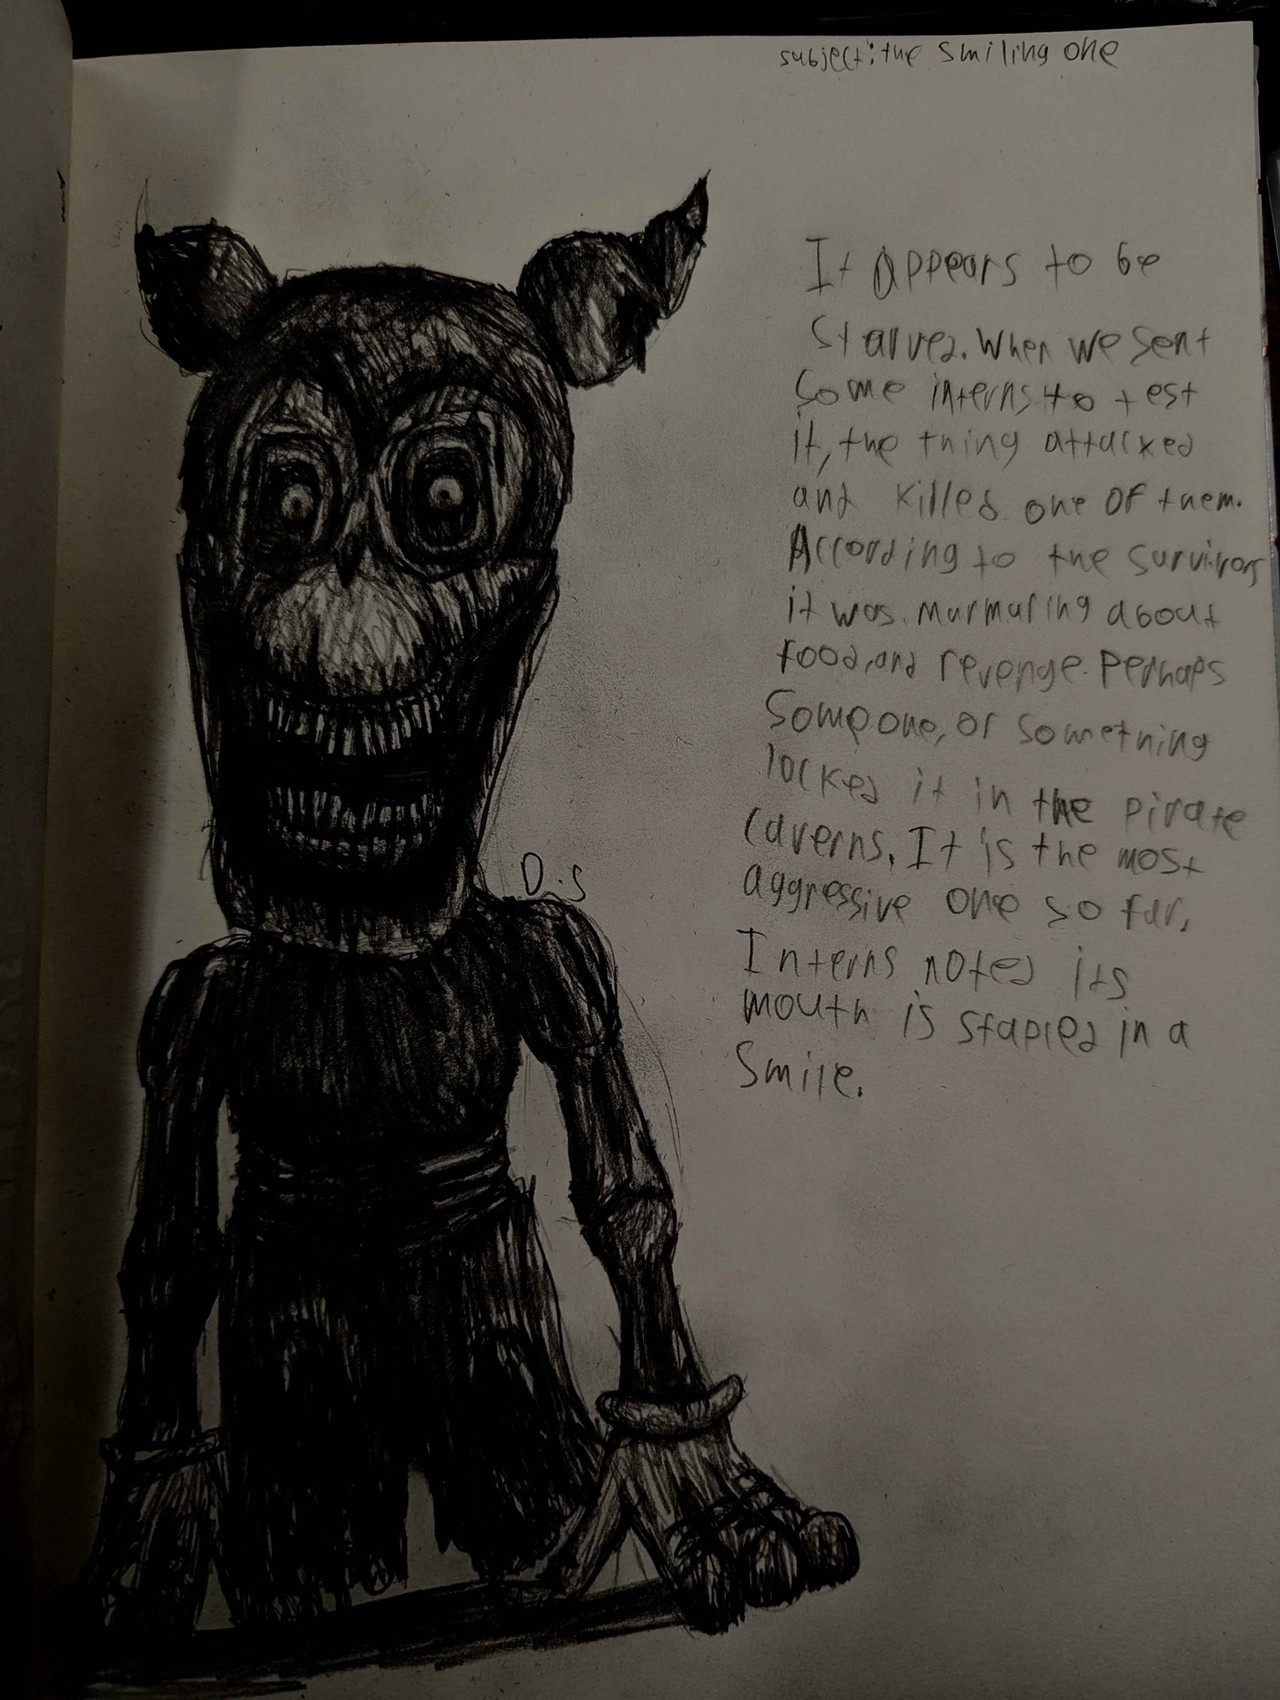 subject: the smiling one
It appears to be
starved. When we sent
some interns to test
it, the thing attacked
and killed one of them.
According to the survivors
it was murmuring about
food, and revenge. Perhaps
someone, or something
locked it in the pirate
caverns. It is the most
aggressive one so far.
Interns noted its
mouth is stapled in a
smile.
D.S